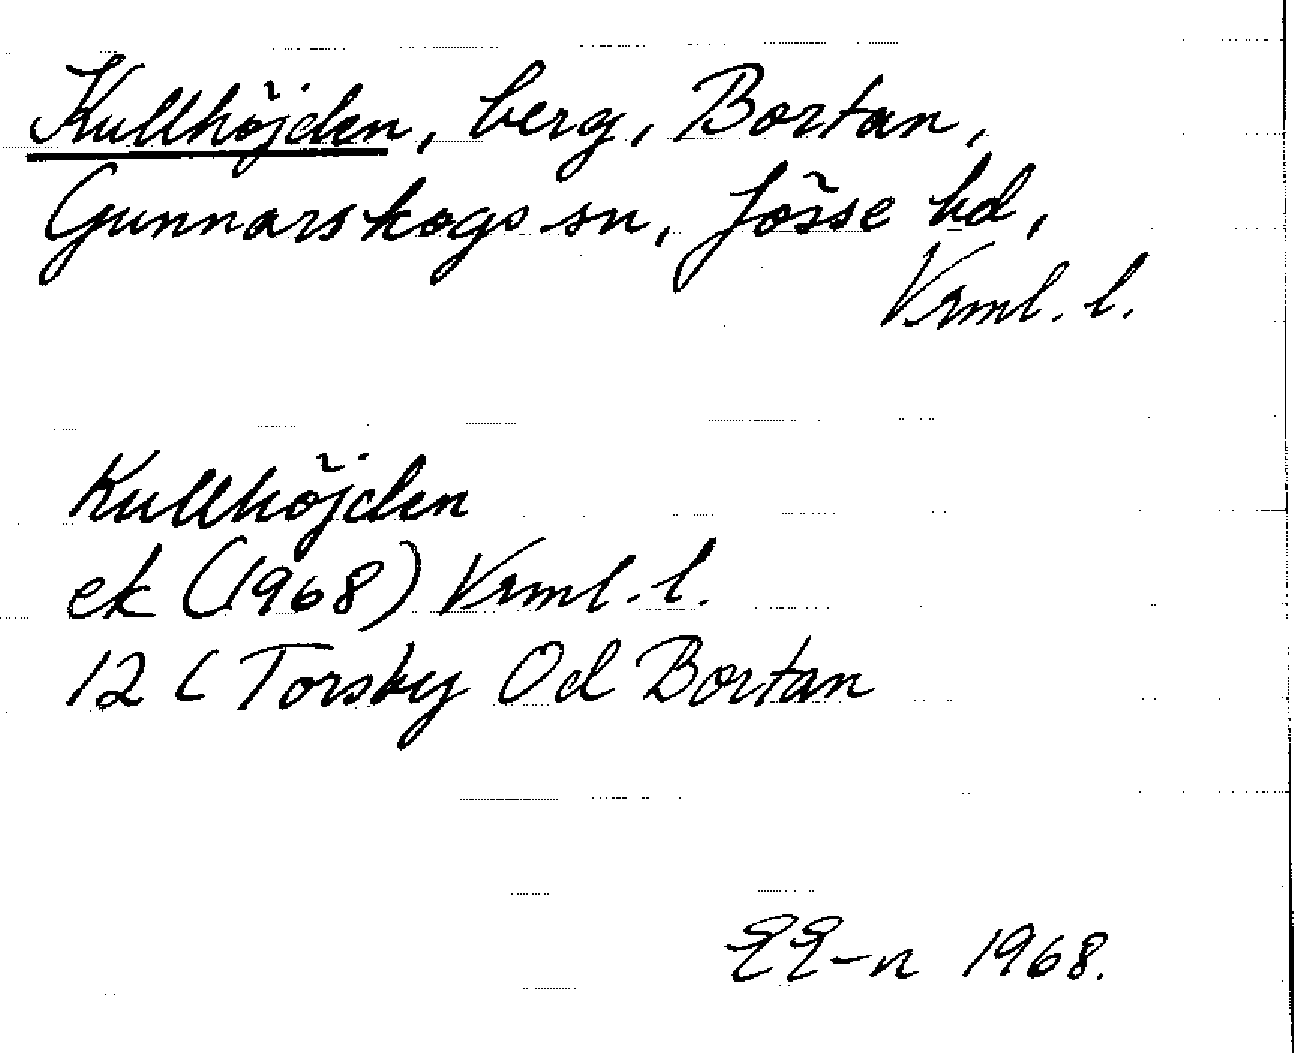 Kullhöjden, berg, Bortan,
Gunnarskogs sn, Jösse hd,
Vrml. l.
Kullhöjden
ek (1968) Vrml. l.
12 C Torsby 0d Bortan
EE-n 1968.